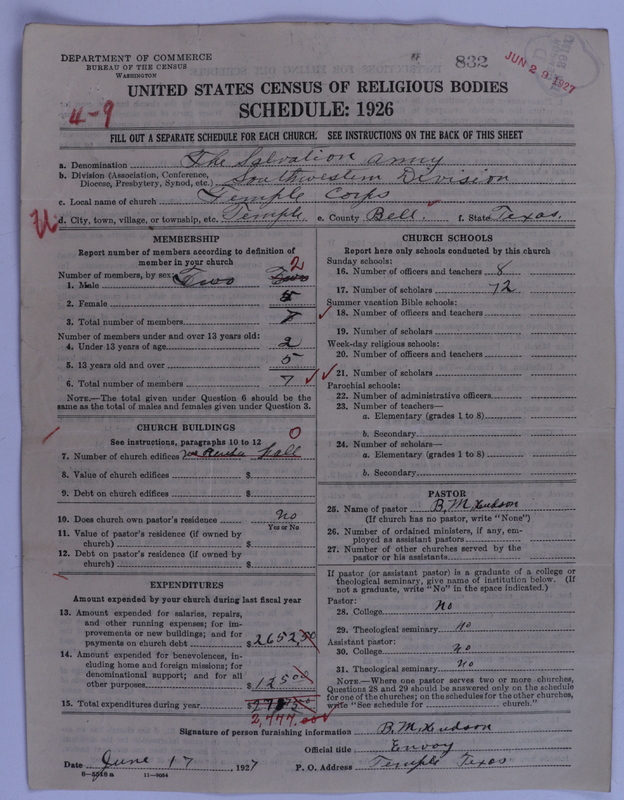 DEPARTMENT OF COMMERCE
BUREAU OF THE CENSUS
WASHINGTON
832
JUN 29 1927
UNITED STATES CENSUS OF RELIGIOUS BODIES
SCHEDULE: 1926
4-9
FILL OUT A SEPARATE SCHEDULE FOR EACH CHURCH. SEE INSTRUCTIONS ON THE BACK OF THIS SHEET
a. Denomination The Salvation Army
b. Division (Association, Conference, Diocese, Presbytery, Synod, etc.) Southwestern Division
c. Local name of church Temple Corps
d. City, town, village, or township, etc. Temple e. County Bell. f. State Texas.
MEMBERSHIP
Report number of members according to definition of
member in your church
Number of members, by sex: 2
1. Male Two
2. Female 5
3. Total number of members 7
Number of members under and over 13 years old:
4. Under 13 years of age 2
5. 13 years old and over 5
6. Total number of members 7
NOTE.—The total given under Question 6 should be
same as the total of males and females given under Question 3.
CHURCH BUILDINGS
See instructions, paragraphs 10 to 12 0
7. Number of church edifices Hall
8. Value of church edifices $
9. Debt on church edifices $
10. Does church own pastor's residence no
Yes or No
11. Value of pastor's residence (if owned by
church) $
12. Debt on pastor's residence (if owned by
church) $
EXPENDITURES
Amount expended by your church during last fiscal year
13. Amount expended for salaries, repairs,
and other running expenses; for im-
provements or new buildings; and for
payments on church debt $ 2652.00
14. Amount expended for benevolences, in-
cluding home and foreign missions; for
denominational support; and for all
other purposes $ 125.00
15. Total expenditures during year
2,777.00
CHURCH SCHOOLS
Report here only schools conducted by this church
Sunday schools:
16. Number of officers and teachers 8
17. Number of scholars 72
Summer vacation Bible schools:
18. Number of officers and teachers
19. Number of scholars
Week-day religious schools:
20. Number of officers and teachers
21. Number of scholars
Parochial schools:
22. Number of administrative officers
23. Number of teachers—
a. Elementary (grades 1 to 8)
b. Secondary
24. Number of scholars—
a. Elementary (grades 1 to 8)
b. Secondary
PASTOR
25. Name of pastor B. M. Hudson
(If church has no pastor, write "None")
26. Number of ordained ministers, if any, em-
ployed as assistant pastors
27. Number of other churches served by the
pastor or his assistants
If pastor (or assistant pastor) is a graduate of a college or
theological seminary, give name of institution below. (If
not a graduate, write "No" in the space indicated.)
Pastor:
28. College No
29. Theological seminary No
Assistant pastor:
30. College no
31. Theological seminary no
NOTE.—Where one pastor serves two or more churches,
Questions 28 and 29 should be answered only on the schedule
for one of the churches; on the schedules for the other churches,
write "See schedule for church."
Signature of person furnishing information B. M. Hudson
Official title Envoy
Date June 17, 1927 P. O. Address Temple Texas
8-5518a 11-9054